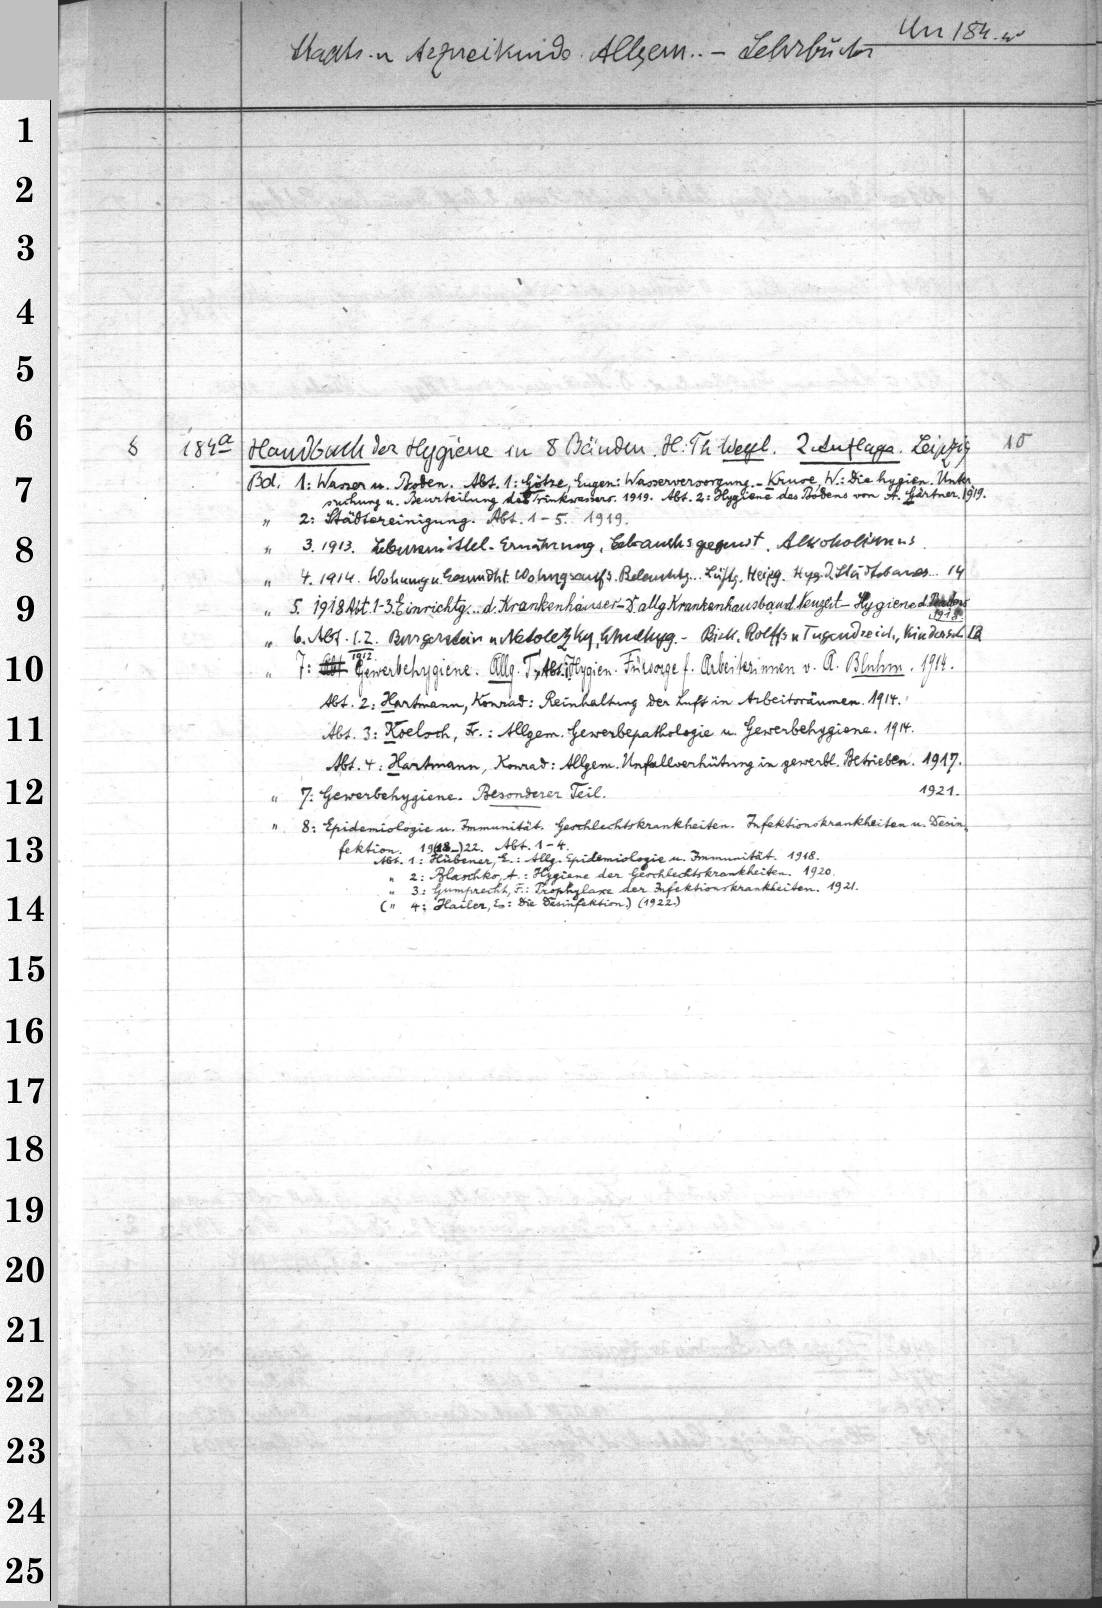 Un 184.
Staats- u Arzneikunde. Allgem. - Lehrbücher
1
2
3
4
5
6
8 184a Handbuch der Hygiene in 8 Bänden. H: Th Weyl. 2. Auflage. Leipzig 10
7
Bd. 1: Wasser u. Boden. Abt. 1: Götze, Eugen: Wasserversorgung. - Kruse, W.: Die hygien. Unter
suchung u. Beurteilung des Trinkwassers. 1919. Abt. 2: Hygiene des Bodens von A. Gärtner. 1919.
" 2: Städtereinigung. Abt. 1-5. 1919.
8
" 3. 1913. Lebensmittel. Ernährung, Gebrauchsgegenst. Alkoholismus.
" 4. 1914. Wohnung u Gesundht. Wohngsaufs. Beleuchtg... Lüftg. Heizg. Hyg. d. Städtebaues... 14
9
" 5. 1918 Abt. 1-3. Einrichtg... d. Krankenhäuser - D. allg Krankenhausbau d. Neuzeit - Hygiene d.
1918.
" 6. Abt. 1.2. Burgerstein u Netolitzky, Schulhyg. - Kindersch. 12
1912
10
" 7: Gewerbehygiene. Allg. T. Abt. 1: Hygien. Fürsorge f. Arbeiterinnen v. A. Bluhm. 1914.
Abt. 2: Hartmann, Konrad: Reinhaltung der Luft in Arbeitsräumen. 1914.
11
Abt. 3: Koelsch, Fr.: Allgem. Gewerbepathologie u. Gewerbehygiene. 1914.
Abt. 4: Hartmann, Konrad: Allgem. Unfallverhütung in gewerbl. Betrieben. 1917.
12
" 7: Gewerbehygiene. Besonderer Teil. 1921.
" 8: Epidemiologie u. Immunität. Geschlechtskrankheiten. Infektionskrankheiten u. Desin
13
fektion. 19(18-)22. Abt. 1-4.
Abt. 1: Hübener, E.: Allg. Epidemiologie u. Immunität. 1918.
" 2: Blaschko, A.: Hygiene der Geschlechtskrankheiten. 1920.
" 3: Gumprecht, F.: Prophylaxe der Infektionskrankheiten. 1921.
14
(" 4: Hailer, E.: Die Desinfektion.) (1922.)
15
16
17
18
19
20
21
22
23
24
25